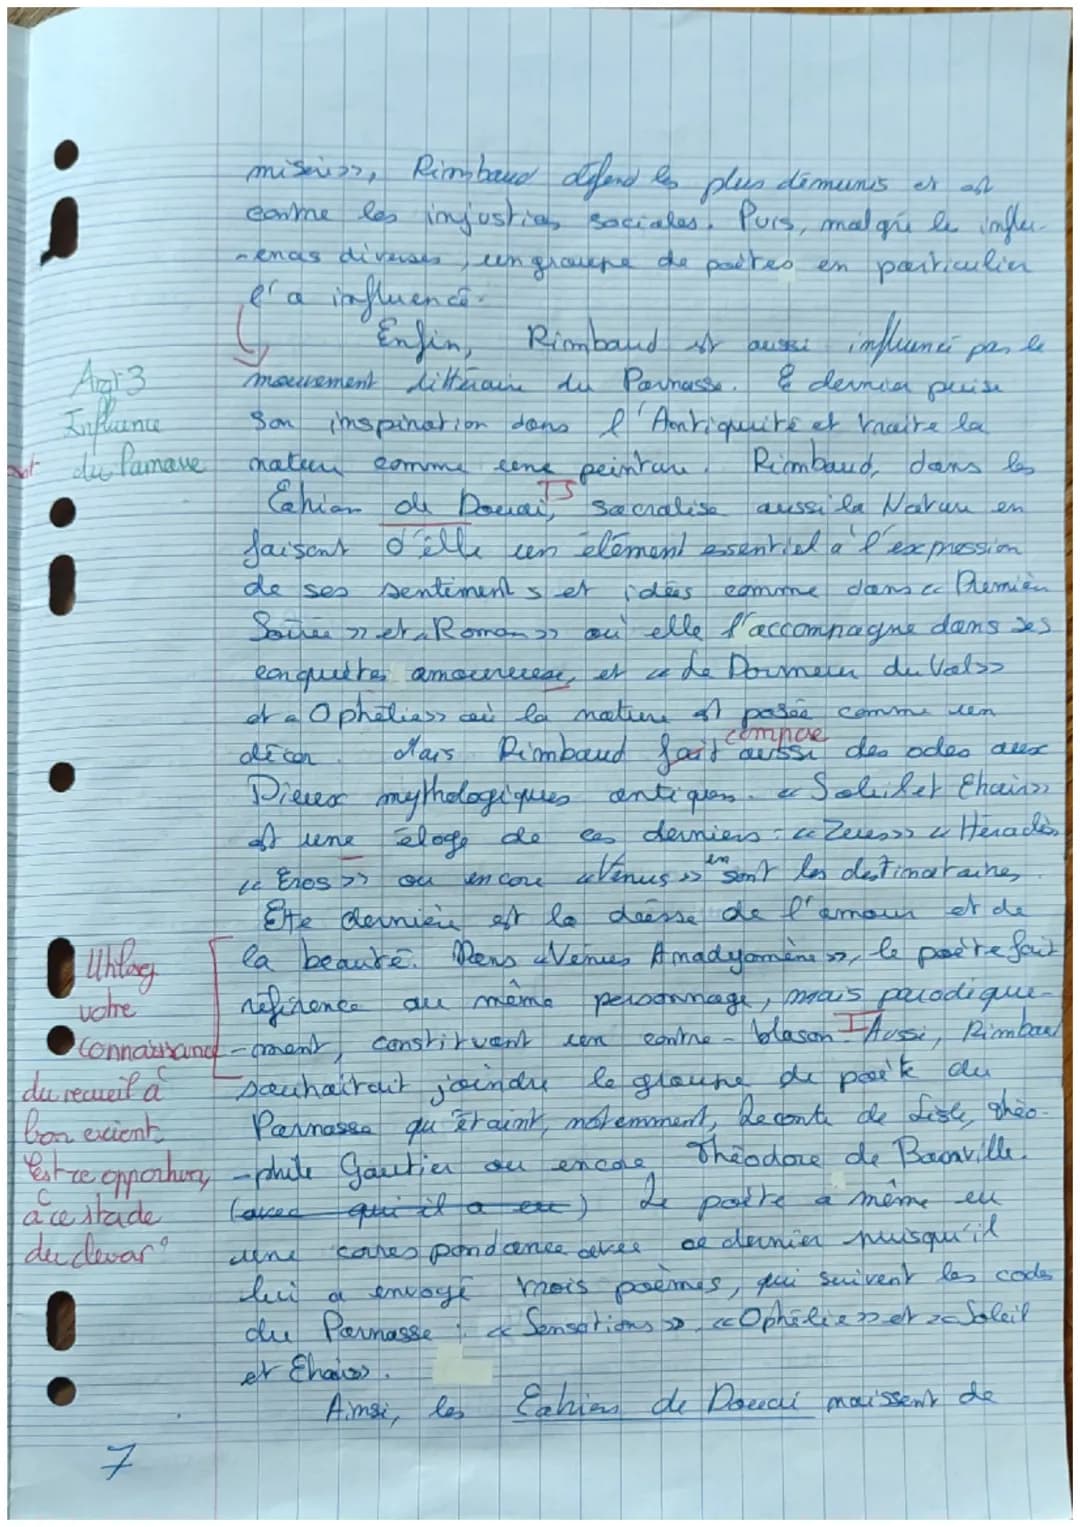 misère», Rimbaud défend les plus démunis et est
contre les injustices sociales. Puis, malgré le influ-
-ences diverses, un groupe de poètes en particulier
l'a influencé.
Enfin, Rimbaud est aussi influencé par le
Arg 3
mouvement littéraire du Parnasse. Ce dernier puise
Influence
son inspiration dans l'Antiquité et traite la
du Parnasse
nature comme une peinture. Rimbaud, dans les
TB
Cahier de Douai, sacralise aussi la Nature en
faisant d'elle un élément essentiel à l'expression
de ses sentiments et idées comme dans « Première
Soirée » et « Roman » où elle l'accompagne dans ses
conquêtes amoureuse, et « Le Dormeur du Val»
et « Ophélie» où la nature est posée comme un
compose
décor. Mais Rimbaud fait aussi des odes aux
Dieux mythologiques antiques. « Soleil et Chair»
est une éloge de ces derniers : « Zeus» « Héraclès
en
« Eros » ou encore «Vénus » sont les destinataires.
Cette dernière est la déesse de l'amour et de
la beauté. Dans «Vénus Anadyomène», le poète fait
Utilisez
votre
référence au même personnage, mais parodique-
connaissance
-ment, constituant un contre-blason. Aussi, Rimbaud
du recueil à
souhaitait joindre le groupe de poète du
bon escient
Parnasse qu'étaint, notemment, Leconte de Lisle, Théo-
Est-ce opportun,
-phile Gautier ou encore Théodore de Banville.
à ce stade
(avec qui il a eu) Le poète a même eu
du devoir?
une correspondance avec ce dernier puisqu'il
lui a envoyé trois poèmes, qui suivent les codes
du Parnasse : « Sensations », «Ophélie» et «Soleil
et Chair».
Ainsi, les Cahiers de Douai naissent de
7